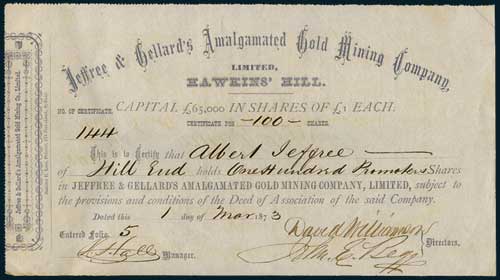 Jeffree & Gellard's Amalgamated Gold Mining Company,
LIMITED,
HAWKINS' HILL.
NO. OF CERTIFICATE.
CAPITAL £65,000 IN SHARES OF £1 EACH.
144
CERTIFICATE FOR -100- SHARES.
This is to Certify that Albert Jeffree
of Hill End holds One Hundred Promoters Shares
in JEFFREE & GELLARD'S AMALGAMATED GOLD MINING COMPANY, LIMITED, subject to
the provisions and conditions of the Deed of Association of the said Company.
Dated this 1 day of Mar 1873
Entered Folio 5
David Williamson
Directors.
Manager.
Jeffree & Gellard's Amalgamated Gold Mining Co., Limited.